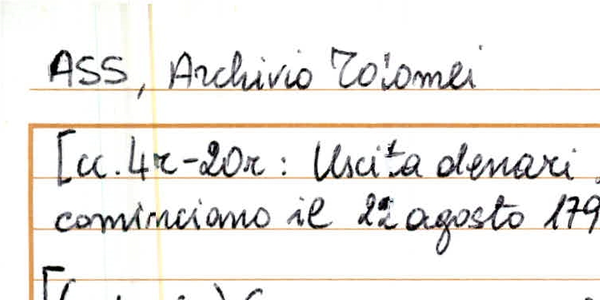 ASS, Archivio Tolomei
[cc. 4r-20r: Uscita denari
cominciano il agosto 179